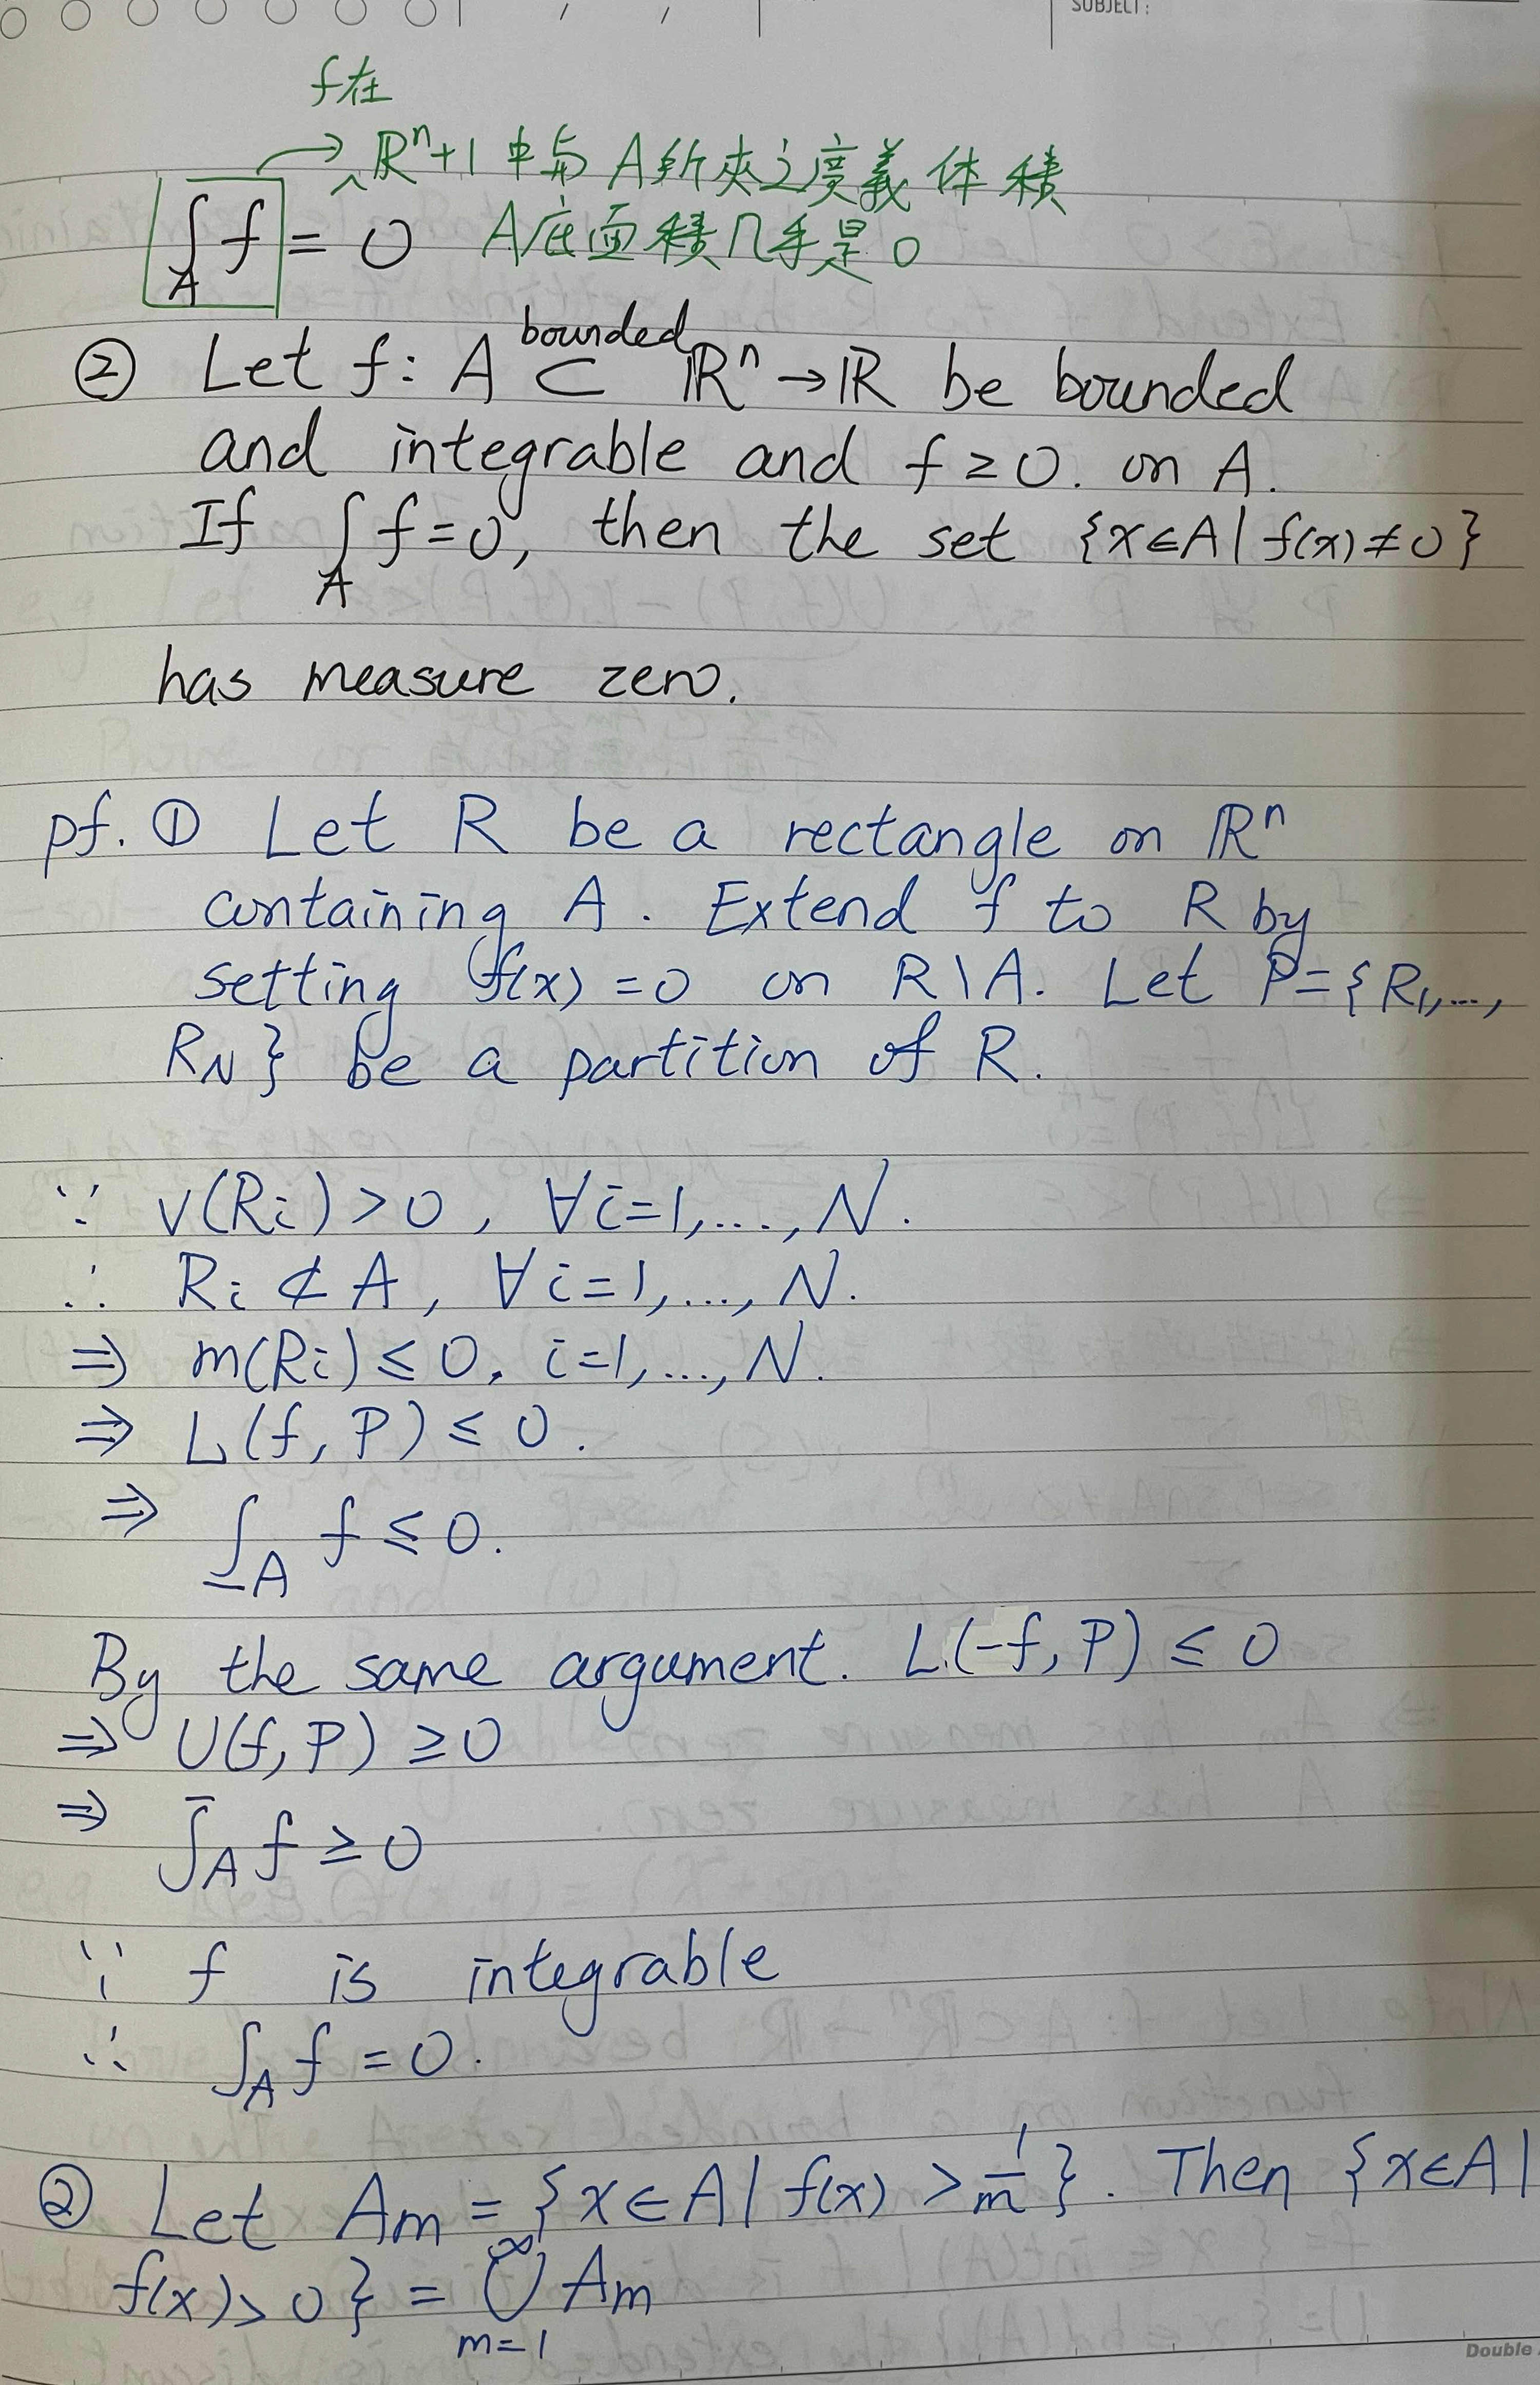 SUBJECT:
f在
ℝⁿ+1 中与 A所夾之廣義体積
∫_A f = 0 A底面積几乎是0
② Let f: A ⊂ ℝⁿ → ℝ be bounded
bounded
and integrable and f ≥ 0. on A.
If ∫_A f = 0, then the set {x∈A | f(x) ≠ 0}
has measure zero.
pf. ① Let R be a rectangle on ℝⁿ
containing A. Extend f to R by
setting f(x) = 0 on R\A. Let P = {R₁, ...,
R_N} be a partition of R.
∵ v(Ri) > 0, ∀i=1, ..., N.
∴ Ri ⊄ A, ∀i=1, ..., N.
⇒ m(Ri) ≤ 0, i=1, ..., N.
⇒ L(f, P) ≤ 0.
⇒ ∫_A f ≤ 0.
By the same argument. L(-f, P) ≤ 0
⇒ U(f, P) ≥ 0
⇒ ∫̄_A f ≥ 0
∵ f is integrable
∴ ∫_A f = 0.
② Let Am = {x∈A | f(x) > 1/m}. Then {x∈A |
f(x) > 0} = ⋃_{m=1}^∞ Am
Double